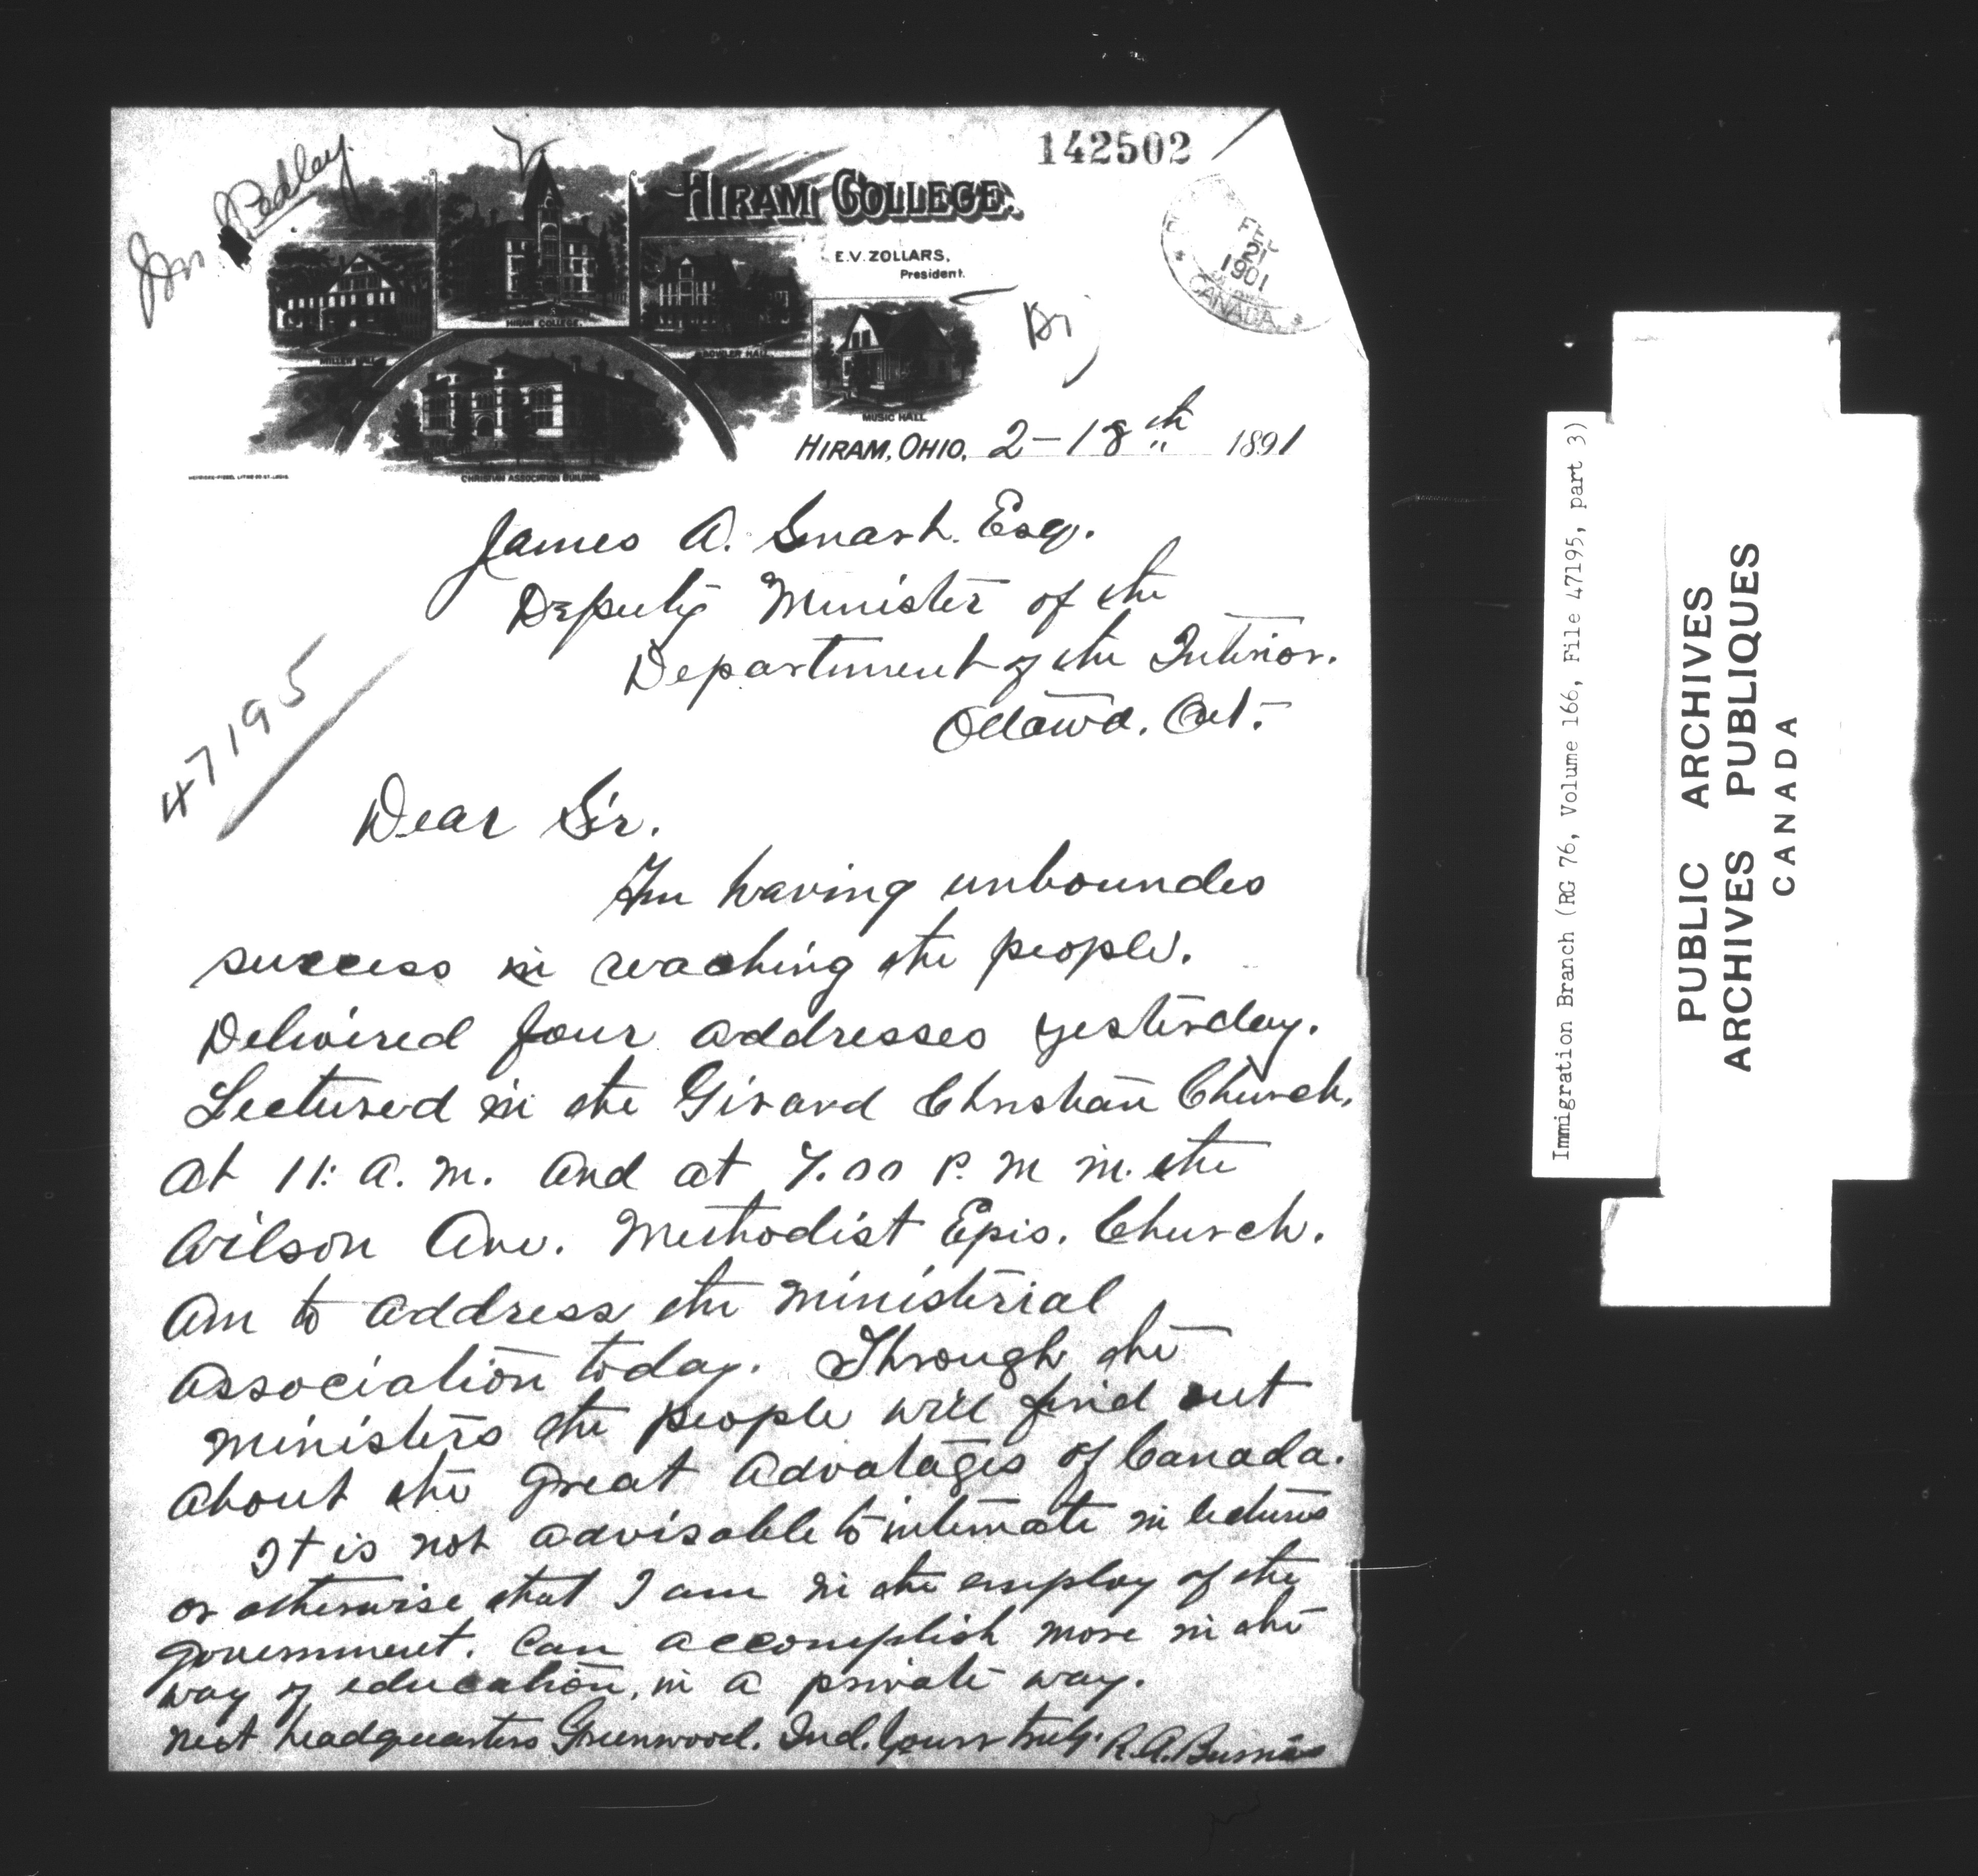 142502
Mr Pedley.
HIRAM COLLEGE.
E.V. ZOLLARS,
President.
FEB
21
1901
CANADA
HIRAM COLLEGE.
MILLER HALL
BOWLER HALL
MUSIC HALL
CHRISTIAN ASSOCIATION BUILDING.
HIRAM, OHIO, 2-18th 1891
James A. Smart. Esq.
Deputy Minister of the
Department of the Interior.
Ottawa. Ont.
47195
Dear Sir.
Am having unbounded
success in reaching the people.
Delivered four addresses yesterday.
Lectured in the Girard Christian Church,
at 11: A.M. and at 7.00 P.M in the
Wilson Ave. Methodist Epis. Church.
Am to address the ministerial
association today. Through the
ministers the people will find out
about the great advatages of Canada.
It is not advisable to intimate in lectures
or otherwise that I am in the employ of the
government. Can accomplish more in the
way of education, in a private way.
next headquarters Greenwood. Ind. Yours truly. R.A. Burriss
Immigration Branch (RG 76, Volume 166, File 47195, part 3)
PUBLIC ARCHIVES
ARCHIVES PUBLIQUES
CANADA